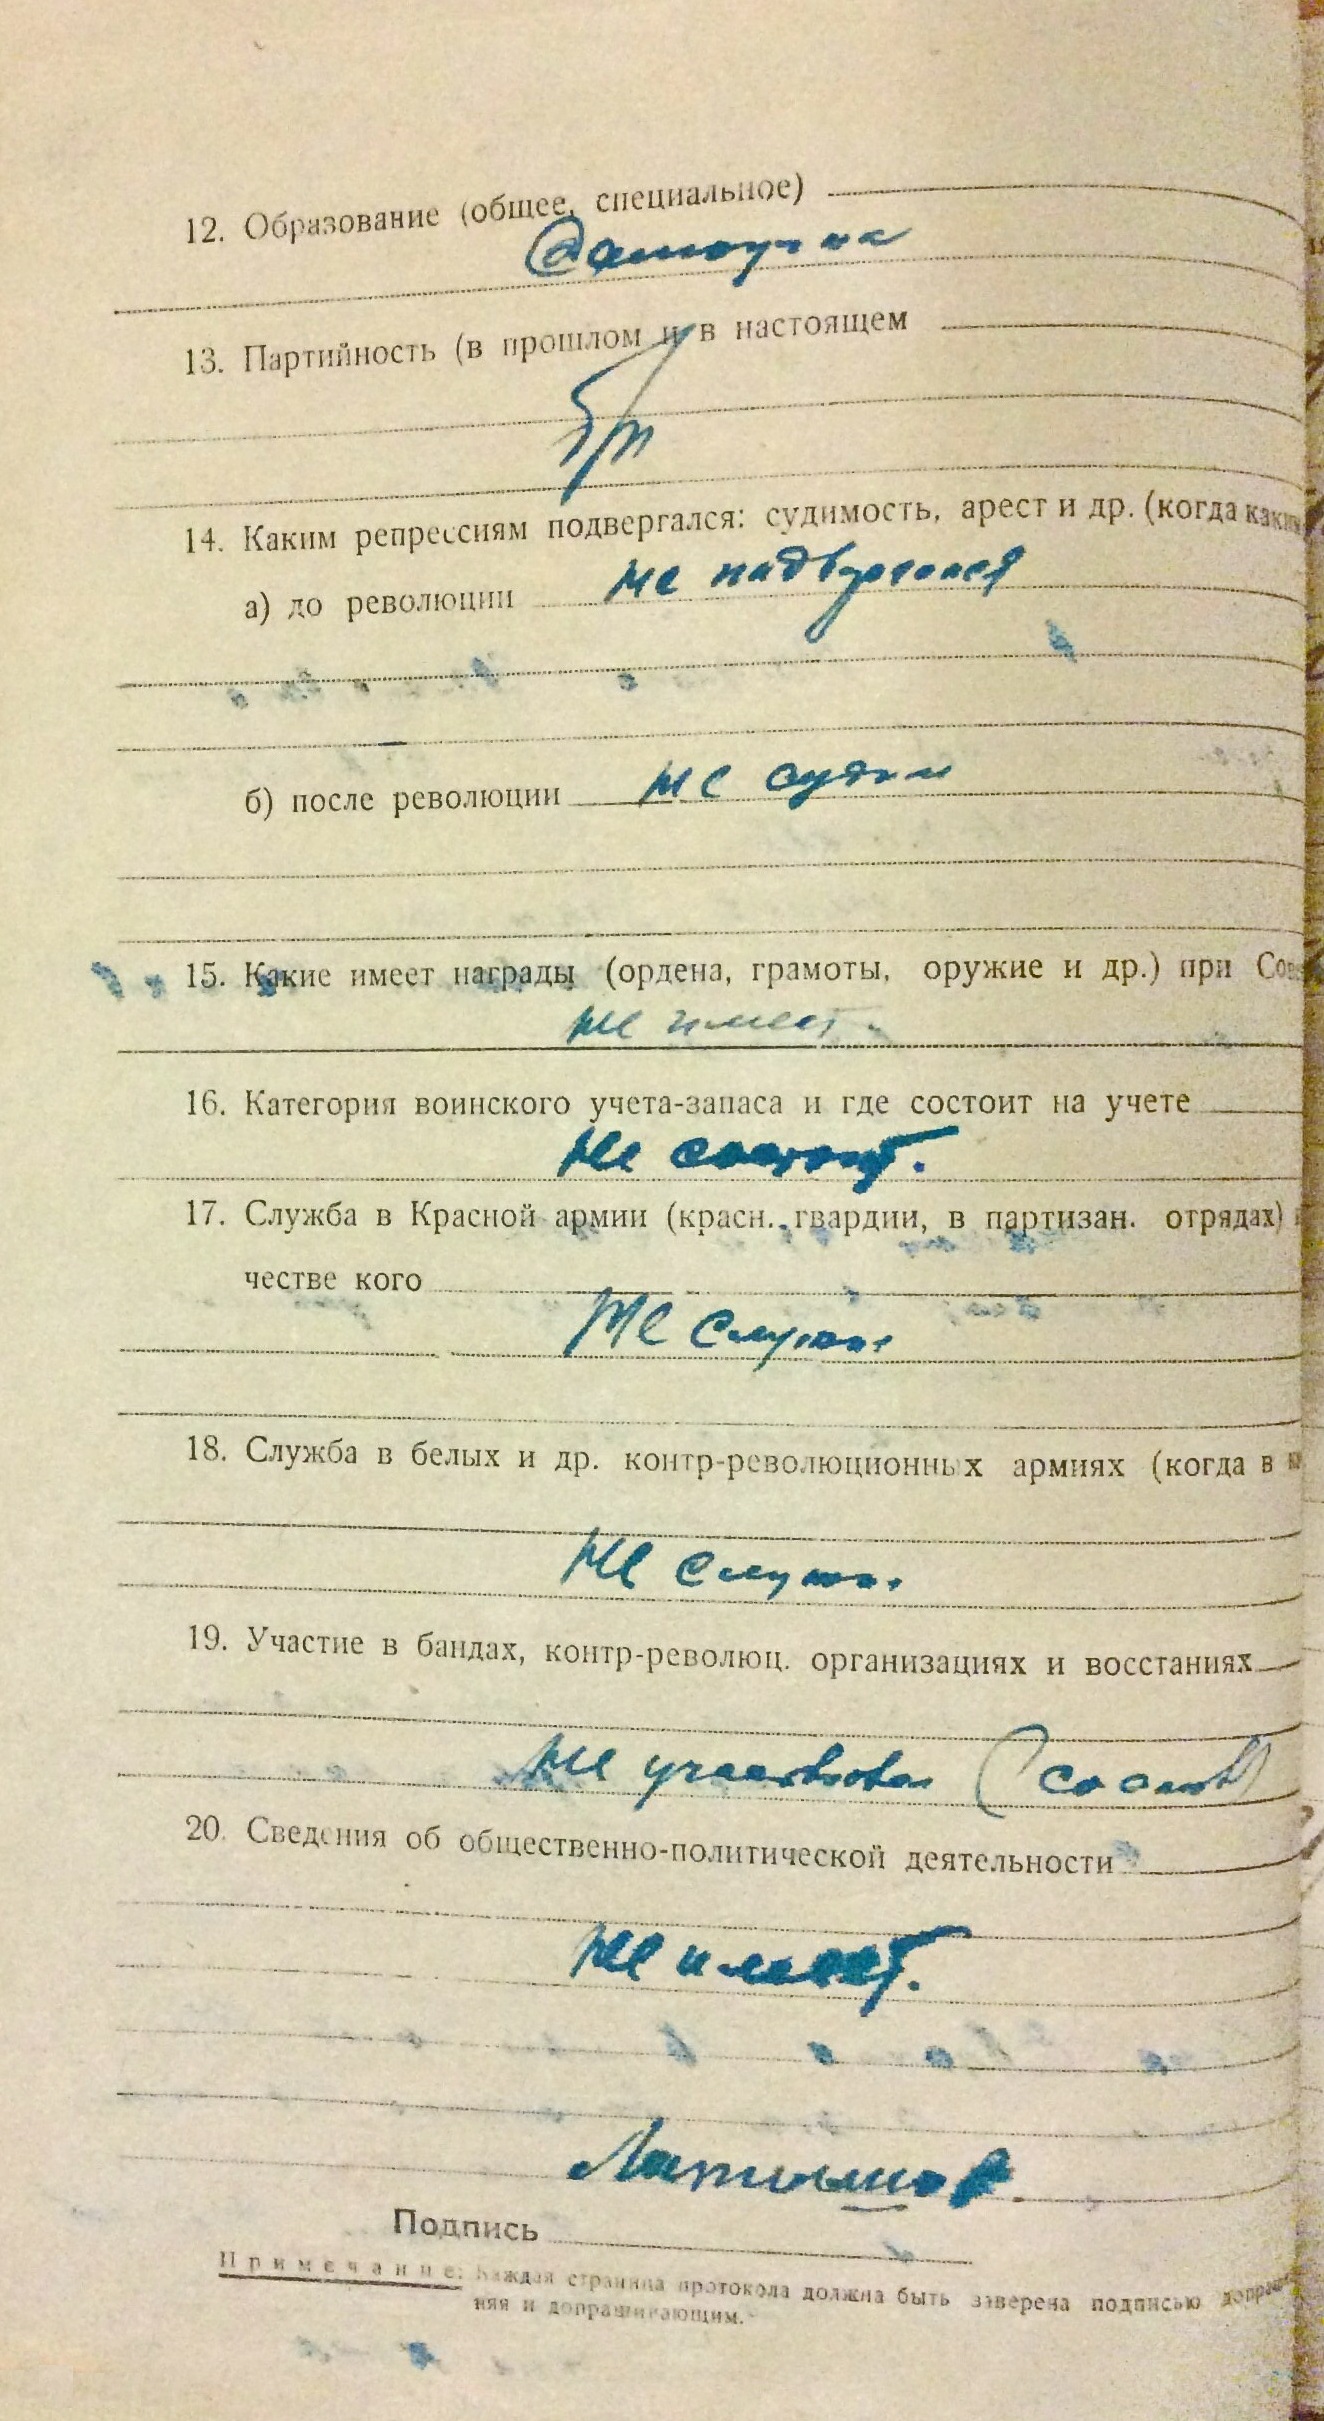 12. Образование (общее, специальное)
Самоучка
13. Партийность (в прошлом и в настоящем
б/п
14. Каким репрессиям подвергался: судимость, арест и др. (когда каким
а) до революции не подвергался
б) после революции не судим
15. Какие имеет награды (ордена, грамоты, оружие и др.) при Сов
не имеет.
16. Категория воинского учета-запаса и где состоит на учете
Не состоит.
17. Служба в Красной армии (красн. гвардии, в партизан. отрядах)
честве кого
Не служил
18. Служба в белых и др. контр-революционных армиях (когда в
Не служил
19. Участие в бандах, контр-революц. организациях и восстаниях
Не участвовал (со слов)
20. Сведения об общественно-политической деятельности
Не имеет.
Подпись
Примечание: Каждая страница протокола должна быть заверена подписью допраши
и допрашивающим.